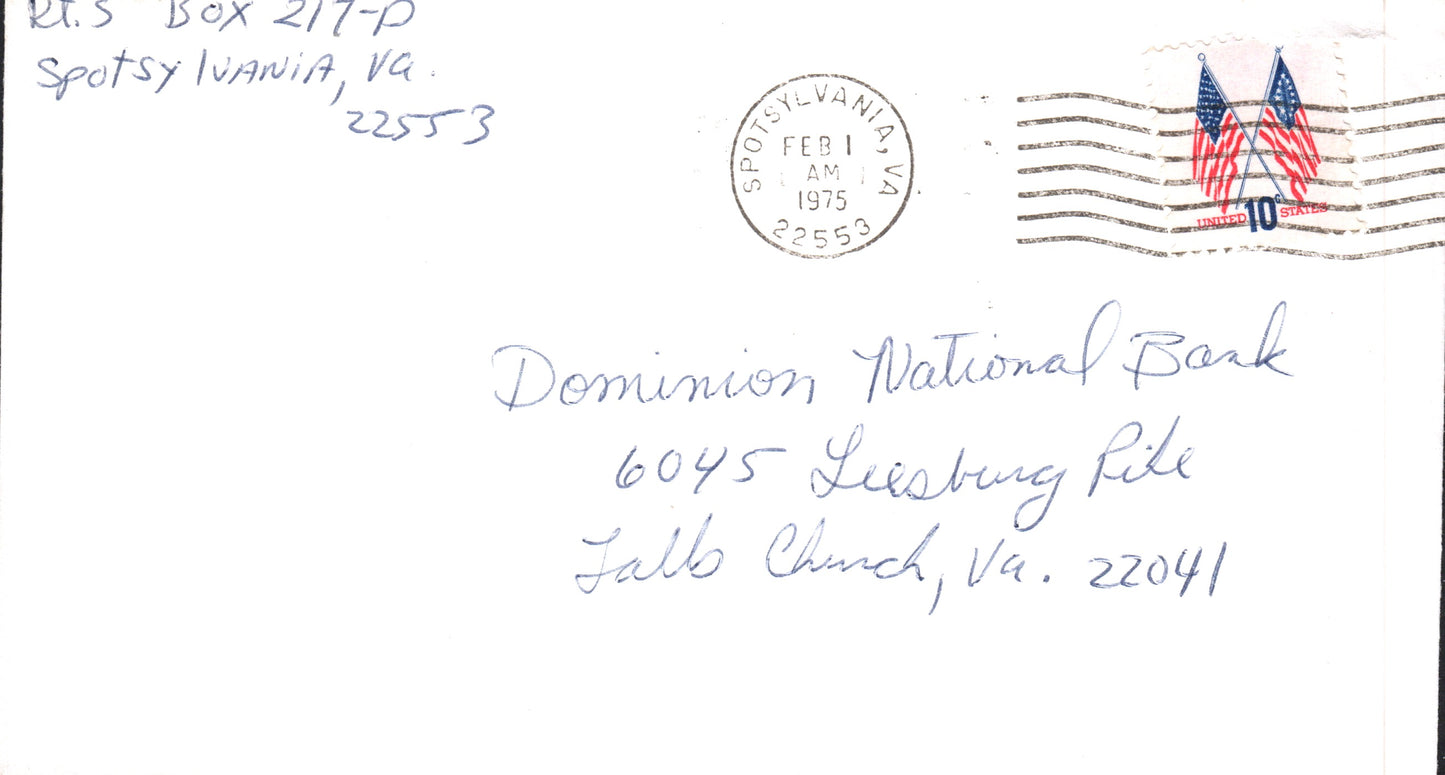 Rt. 5 Box 217-D
Spotsylvania, Va.
22553
SPOTSYLVANIA, VA
FEB 1
AM
1975
22553
UNITED 10c STATES
Dominion National Bank
6045 Leesburg Pike
Falls Church, Va. 22041